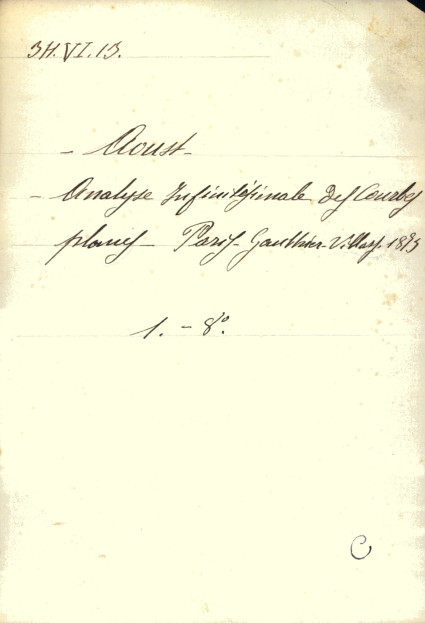 3H.VI.13.
- Aoust -
- Analyse Infinitésimale Des Courbes
planes - Paris - Gauthier-Villars. 1873
1. - 8º.
C